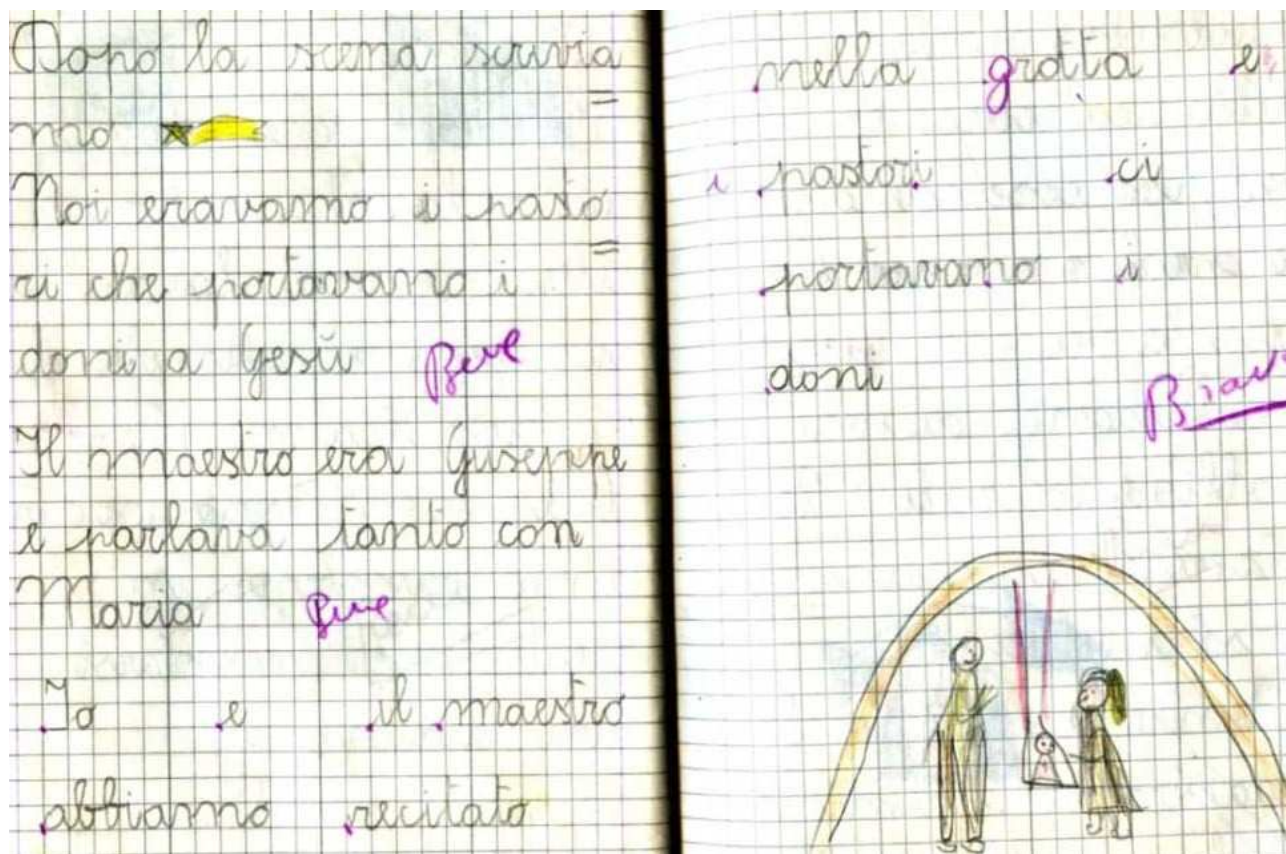 Dopo la scena scrivia
=
mo
Noi eravamo i pasto
=
ri che portavamo i
doni a Gesù Bene
Il maestro era Giuseppe
e parlava tanto con
Maria Bene
Io e il maestro
abbiamo recitato
nella grotta e
i pastori ci
portavano i
doni